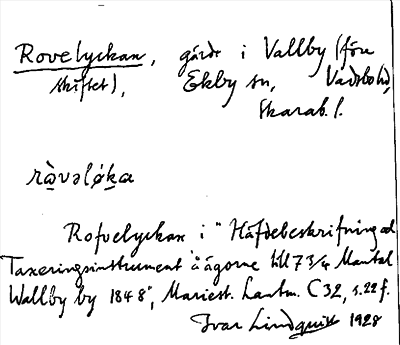 Rovelyckan, gärde i Vallby (före
skiftet), Ekby sn, Vadsbohd,
Skarab. l.
rὰvəlǿka
Rofvelyckan i "Häfdebeskrifning och
Taxeringsinstrument å ägorne till 7 3/4 Mantal
Wallby by 1848", Mariest. Lantm. C 32, s. 22 f.
Ivar Lindquist 1928